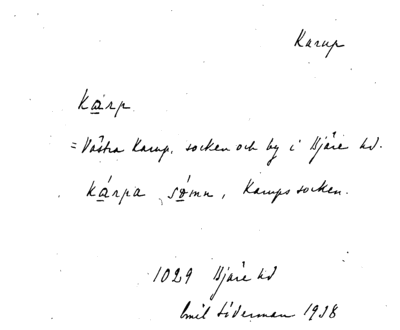 Karup
kárp
= Västra Karup, socken och by i Bjäre hd.
kárpa sómn, Karups socken.
1029 Bjäre hd
Emil Söderman 1938